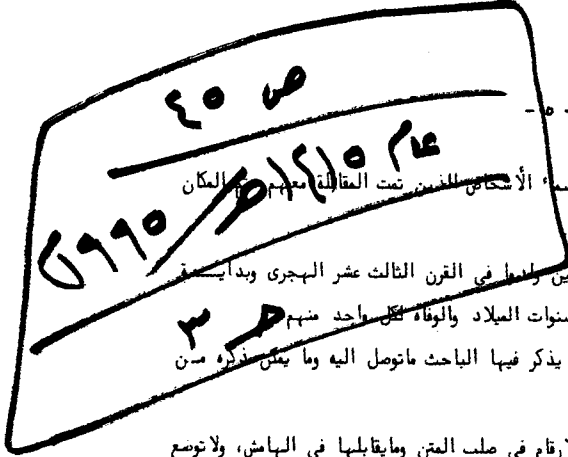 - ٥ -
ص ٤٥
عام ١٤١٥ هـ / ١٩٩٥ م
الأشخاص الذين تمت المقابلة معهم المكان
ولدوا في القرن الثالث عشر الهجرى وبدايـــة
سنوات الميلاد والوفاة لكل واحد منهم
حـ ٣
يذكر فيها الباحث ماتوصل اليه وما يمكن ذكره مــن
لارقام في صلب المتن ومايقابلها في الهامش، ولاتوضع